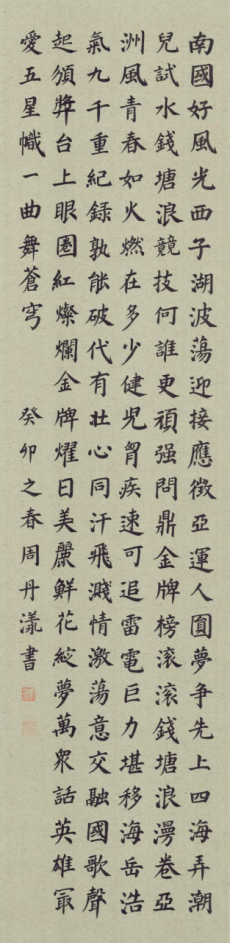 南國好風光西子湖波蕩迎接應徵亞運人圓夢争先上四海弄潮
兒試水錢塘浪競技何誰更頑强問鼎金牌榜滚滚錢塘浪漫卷亞
洲風青春如火燃在多少健児胷疾速可追雷電巨力堪移海岳浩
氣九千重紀録孰能破代有壮心同汗飛濺情激蕩意交融國歌聲
起頒奬台上眼圏紅燦爛金牌燿日美麗鮮花綻夢萬衆話英雄冣
愛五星幟一曲舞蒼穹 癸卯之春周丹漾書